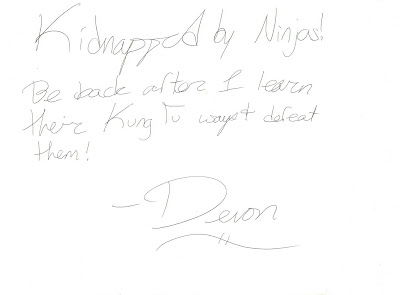 Kidnapped by Ninjas!
Be back after I learn
their Kung Fu ways & defeat
them!
- Devon